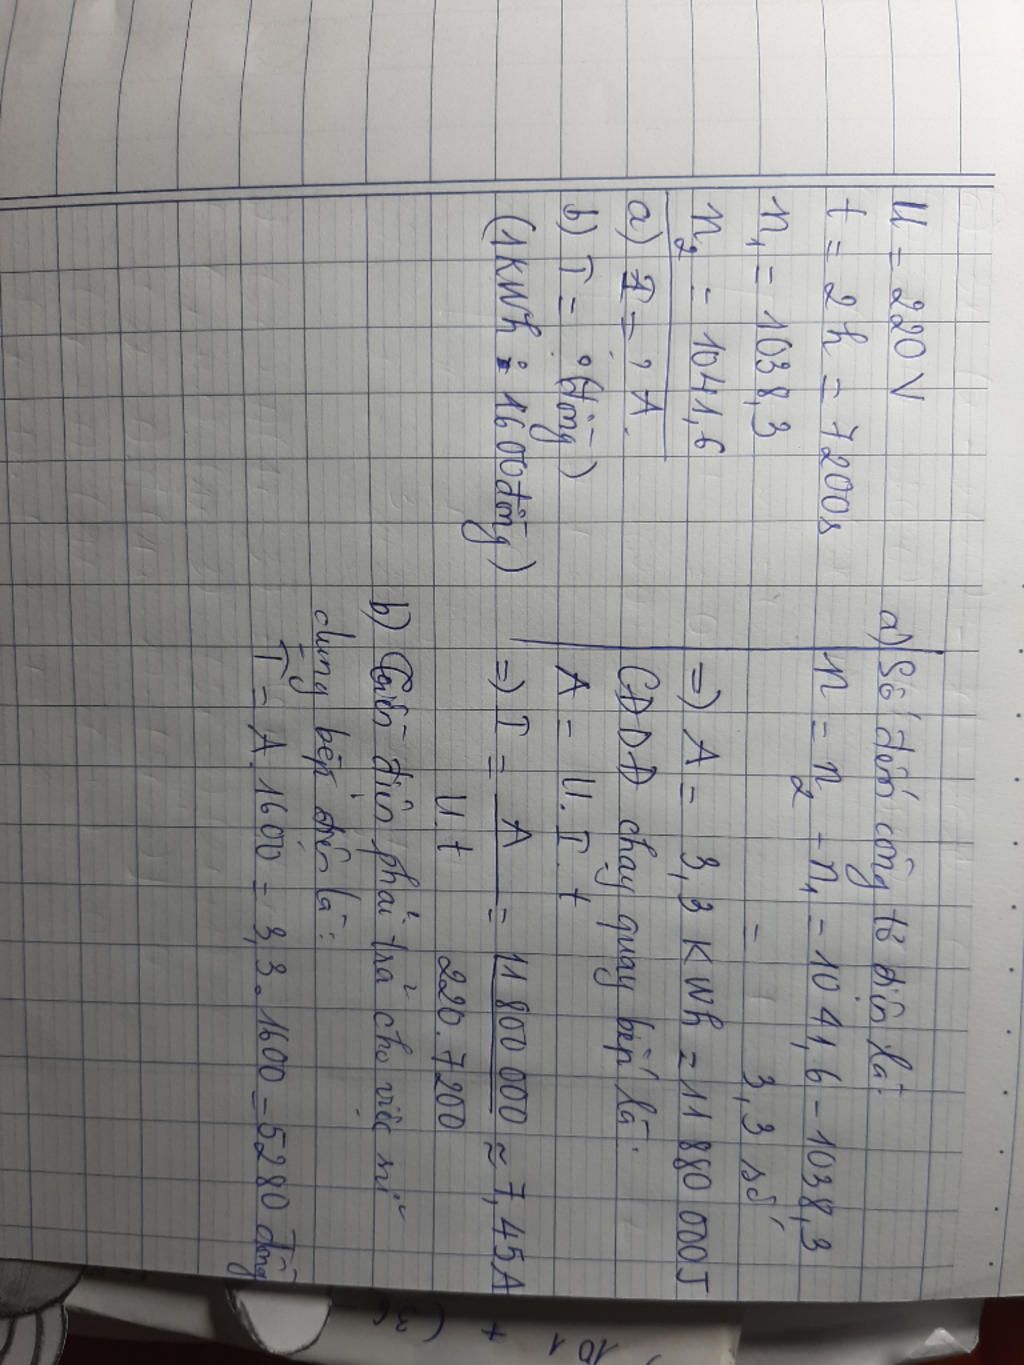 U = 220 V
t = 2 h = 7200s
n₁ = 1038,3
n₂ = 1041,6
a) I = ? A.
b) T = ? (đồng)
(1 KWh : 1600 đồng)
a) Số đếm công tơ điện là:
n = n₂ - n₁ = 1041,6 - 1038,3
= 3,3 số
=) A = 3,3 KWh = 11 880 000J
CĐDĐ chạy quay bếp là:
A = U.I.t
=) I = A / U.t = 11 800 000 / 220.7200 ≈ 7,45A
b) Tiền điện phải trả cho việc sử
dụng bếp điện là:
T = A.1600 = 3,3.1600 = 5280 đồng
101
+